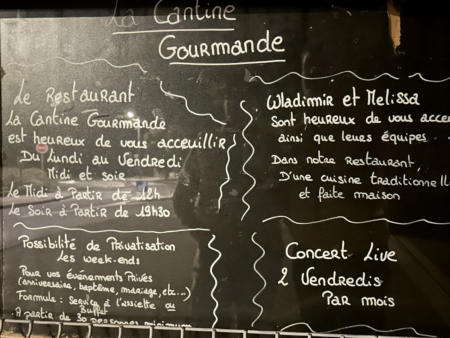 La Cantine
Gourmande
Le Restaurant
La Cantine Gourmande
est heureux de vous acceuillir
Du Lundi au Vendredi
Midi et soir
Le Midi à Partir de 12h
Le Soir à Partir de 19h30
Wladimir et Melissa
Sont heureux de vous acce
ainsi que leurs équipes.
Dans notre Restaurant,
D'une cuisine traditionnell
et faite maison
Possibilité de Privatisation
Les week-ends
Pour vos événements Privés
(anniversaire, baptême, mariage, etc...)
Formule: Service à l'assiette ou
Buffet
A partir de 30 personnes minimum
Concert Live
2 Vendredis
Par mois